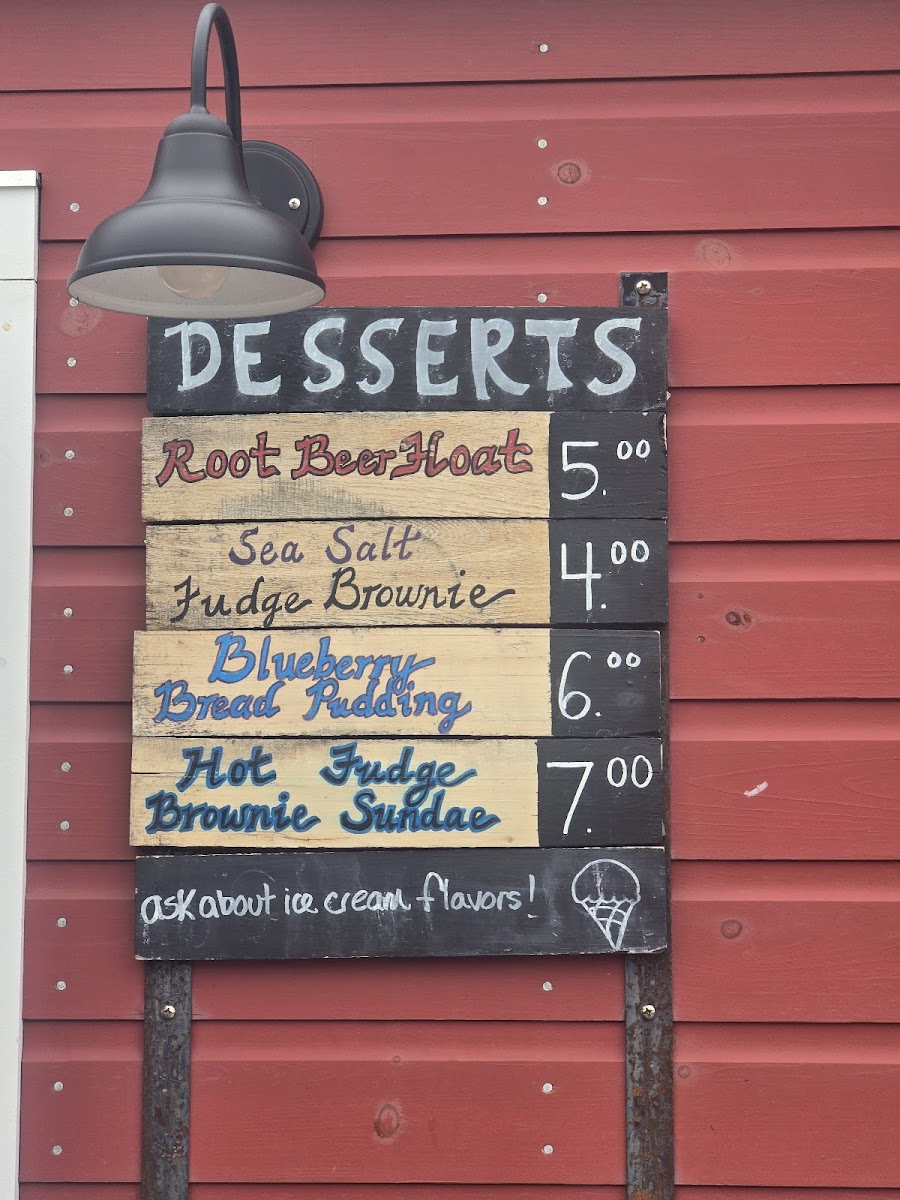 DESSERTS
Root Beer Float 5.00
Sea Salt
Fudge Brownie 4.00
Blueberry
Bread Pudding 6.00
Hot Fudge
Brownie Sundae 7.00
ask about ice cream flavors!